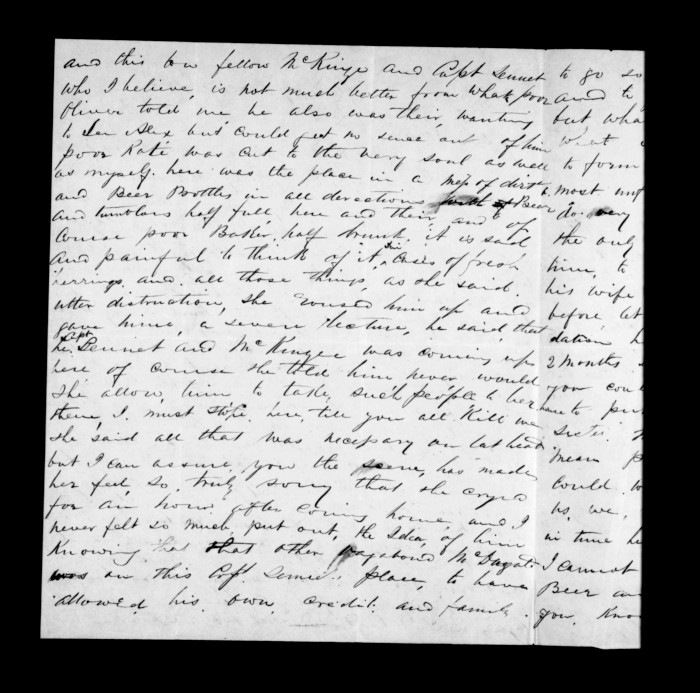 and this low fellow McKinge and Capt Sennet
who I believe, is not much better from what poor
Oliver told me, he also was their, wanting
to see Alex but could get no sence out of him
poor Kate was cut to the very soul as well
as myself. here was the place in a mess of dirt
and Beer Bottles in all directions Beer
and tumblers half full, here and their and of
course poor Batter, half drunk, it is sad
and painful to think of it, Tin Cases of fresh
herrings, and all those things, as she said.
utter distruction, she roused him up and
gave hime, a severe lecture, he said, that
he, Capt Sennet and McKingee was coming up
here of course she told him never would
she allow, him to take, such people to her
there, I must stope here, till you all kill me
she said all that was necessary on that head
but I can assure you the scene, has made
her feel, so, truly sorry that she cryed
for an hour after coming home, and I
never felt so much put out, the Idea, of him
Knowing that that other vagabond
was on this Capt place, to have
allowed his own credit and family
to go so
and to
but wha
to form
most
do very
the only
hime, to
his wife
before, let
dation
2 months
your
have to
Sister.
mean
could w
us, we,
in time he
I cannot
Beer an
you, Kno